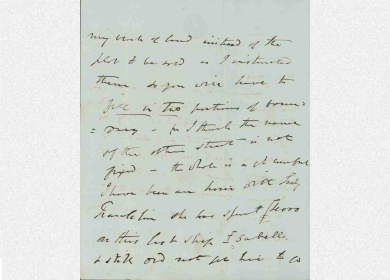 my block of land instead of the
plot to be sold as I instructed
them. so you will have to
fill in two portions of boun=
=dary - for I think the name
of the other street is not
fixed - the whole is a
I have been an hour with Lady
Franklin she has spent
on this last ship Isabella
& still did not get her to go